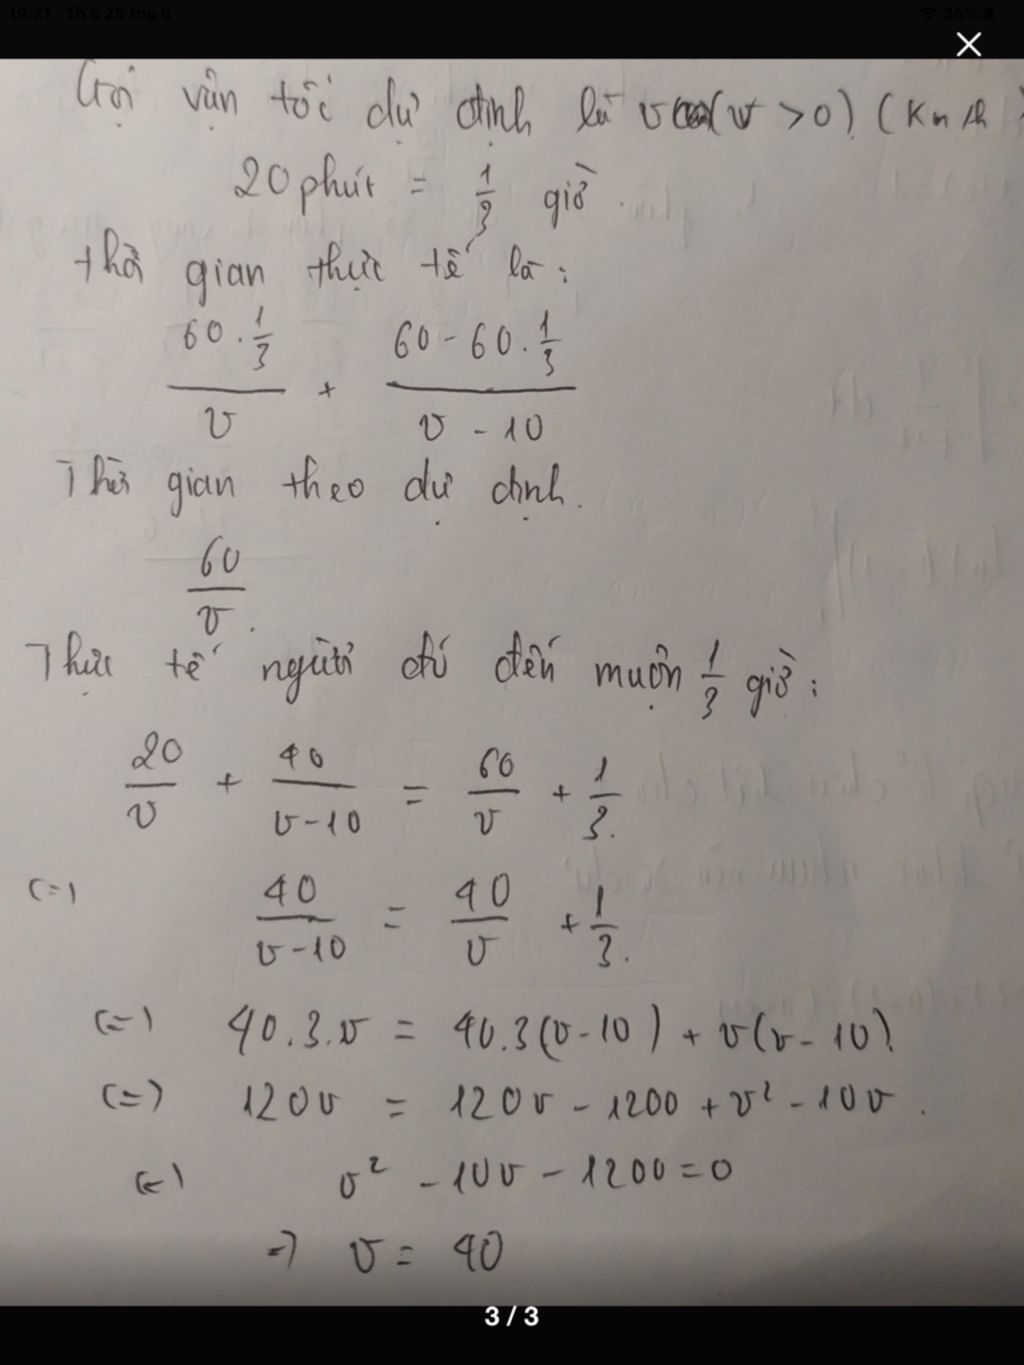 19:21 Th 5 25 thg 6 36%
Gọi vận tốc dự định là v (v > 0) (Km/h)
20 phút = 1/3 giờ.
thời gian thực tế là:
60 . 1/3 / v + 60 - 60 . 1/3 / v - 10
Thời gian theo dự định.
60/v.
Thực tế người đó đến muộn 1/3 giờ:
20/v + 40/v-10 = 60/v + 1/3.
(=) 40/v-10 = 40/v + 1/3.
(=) 40.3.v = 40.3(v-10) + v(v-10).
(=) 120v = 120v - 1200 + v² - 10v.
(=) v² - 10v - 1200 = 0
=) v = 40
3 / 3